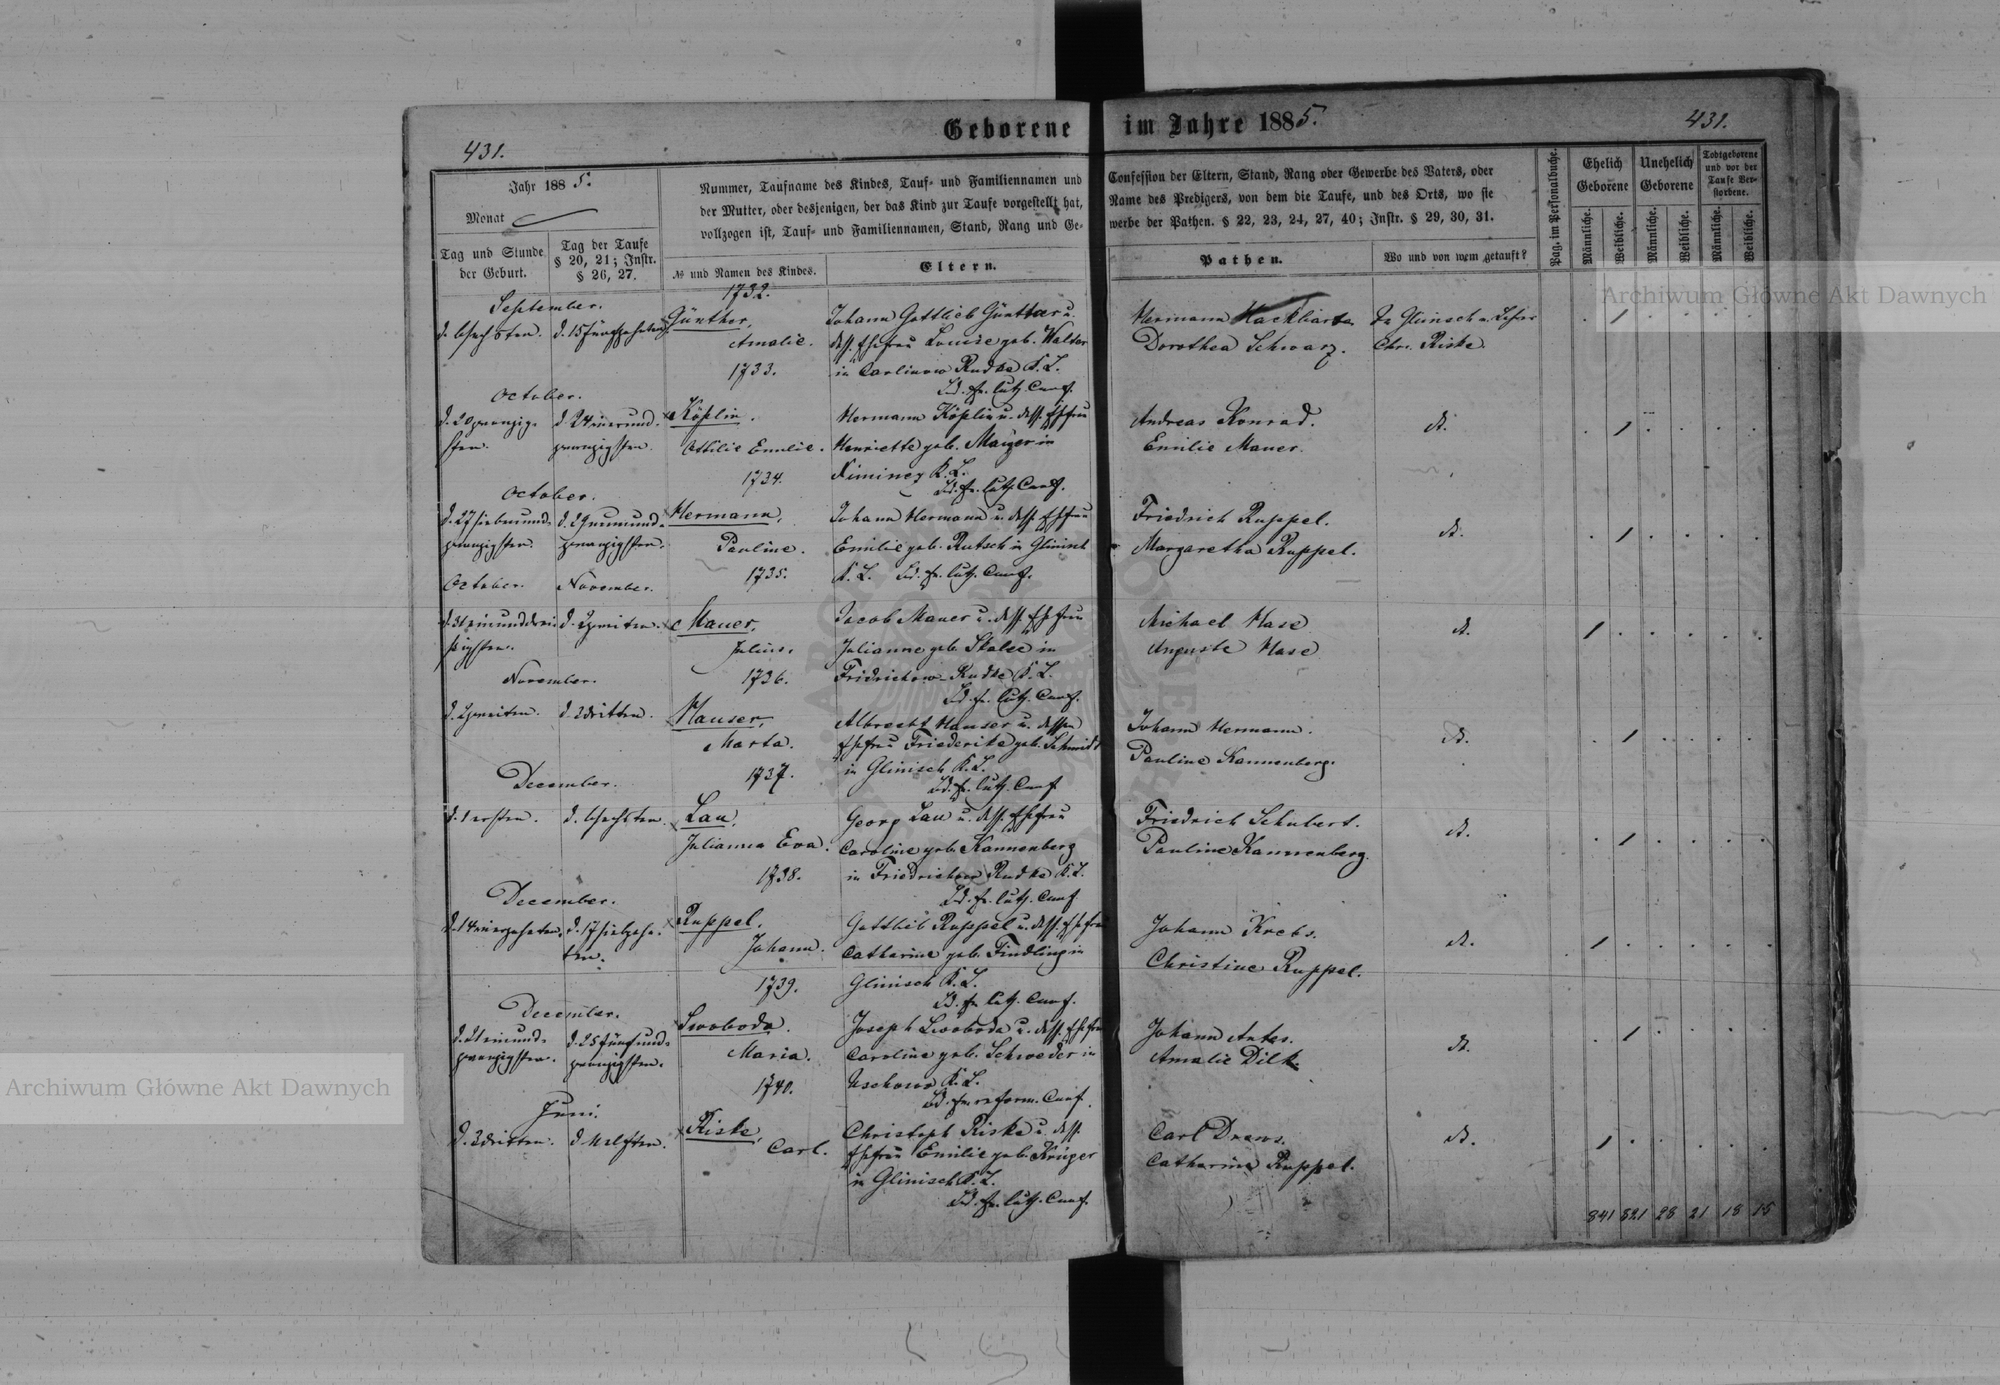 Geborene im Jahre 1885.
431.
431.
Jahr 1885.
Monat
Tag und Stunde der Geburt.
Tag der Taufe § 20, 21; Instr. § 26, 27.
Nummer, Taufname des Kindes, Tauf- und Familiennamen und
der Mutter, oder desjenigen, der das Kind zur Taufe vorgestellt hat,
vollzogen ist, Tauf- und Familiennamen, Stand, Rang und Ge-
№ und Namen des Kindes.
Eltern.
Confession der Eltern, Stand, Rang oder Gewerbe des Vaters, oder
Name des Predigers, von dem die Taufe, und des Orts, wo sie
werbe der Pathen. § 22, 23, 24, 27, 40; Instr. § 29, 30, 31.
Pathen.
Wo und von wem getauft?
Pag. im Personalbuche.
Ehelich Geborene
Unehelich Geborene
Todtgeborene und vor der Taufe Verstorbene.
Männliche.
Weibliche.
Männliche.
Weibliche.
Männliche.
Weibliche.
September.
d. 6 sechsten.
d. 15 fünfzehnten
1732.
Günther,
Amalie.
Johann Gottlieb Günther u.
dess. Ehefrau Louise geb. Walter
in Carlinow Rudke K. L.
Bd. ev. luth. Conf.
Hermann
Dorothea Schwarz.
In Glinisch v. Lehrer
Chr. Riske.
October.
d. 20 zwanzig-
sten.
d. 24 vierund-
zwanzigsten.
1733.
Köplin.
Ottilie Emilie.
Hermann Köplin u. dess. Ehefrau
Henriette geb. Maizer in
Ziminez K. L.
Bd. ev. luth. Conf.
Andreas Konrad.
Emilie Mauer.
dt.
October.
d. 27 siebenund-
zwanzigsten.
d. 29 neunund-
zwanzigsten.
1734.
Hermann,
Pauline.
Johann Hermann u. dess. Ehefrau
Emilie geb. Rutsch in Glinisch
K. L. Bd. ev. luth. Conf.
Friedrich Ruppel.
Margaretha Ruppel.
dt.
October.
November.
d. 31 einunddrei-
ßigsten.
d. 2 zweiten.
1735.
Mauer,
Julius.
Jacob Mauer u. dess. Ehefrau
Julianne geb. Stolze in
Fridrichow Rudke K. L.
Bd. ev. luth. Conf.
Michael Hase
Auguste Hase
dt.
November.
d. 2 zweiten.
d. 3 dritten.
1736.
Hauser,
Marta.
Albrecht Hauser u. dessen
Ehefrau Friederike geb. Schmidt
in Glinisch K. L.
Bd. ev. luth. Conf
Johann Hermann.
Pauline Kannenberg.
dt.
December.
d. 1 ersten.
d. 6 sechsten
1737.
Lau,
Julianna Eva.
Georg Lau u. dess. Ehefrau
Caroline geb. Kannenberg
in Friedrichow Rudke K. L.
Bd. ev. luth. Conf.
Friedrich Schubert.
Pauline Kannenberg.
dt.
December.
d. 14 vierzehnten.
d. 17 siebzehn-
ten.
1738.
Ruppel,
Johann.
Gottlieb Ruppel u. dess. Ehefrau
Catharine geb. Findling in
Glinisch K. L.
Bd. ev. luth. Conf.
Johann Krebs.
Christine Ruppel.
dt.
December.
d. 21 einund-
zwanzigsten.
d. 25 fünfund-
zwanzigsten.
1739.
Swoboda.
Maria.
Joseph Swoboda u. dess. Ehefrau
Caroline geb. Schroeder in
Uschowo K. L.
Bd. ev. reform. Conf.
Johann Antes.
Amalie Dilk.
dt.
Juni.
d. 3 dritten.
d. 11 elften.
1740.
Riske,
Carl.
Christoph Riske u. dess.
Ehefrau Emilie geb. Krüger
in Glinisch K. L.
Bd. ev. luth. Conf.
Carl Drews.
Catharine Ruppel.
dt.
841 821 28 21 18 15
Archiwum Główne Akt Dawnych
Archiwum Główne Akt Dawnych